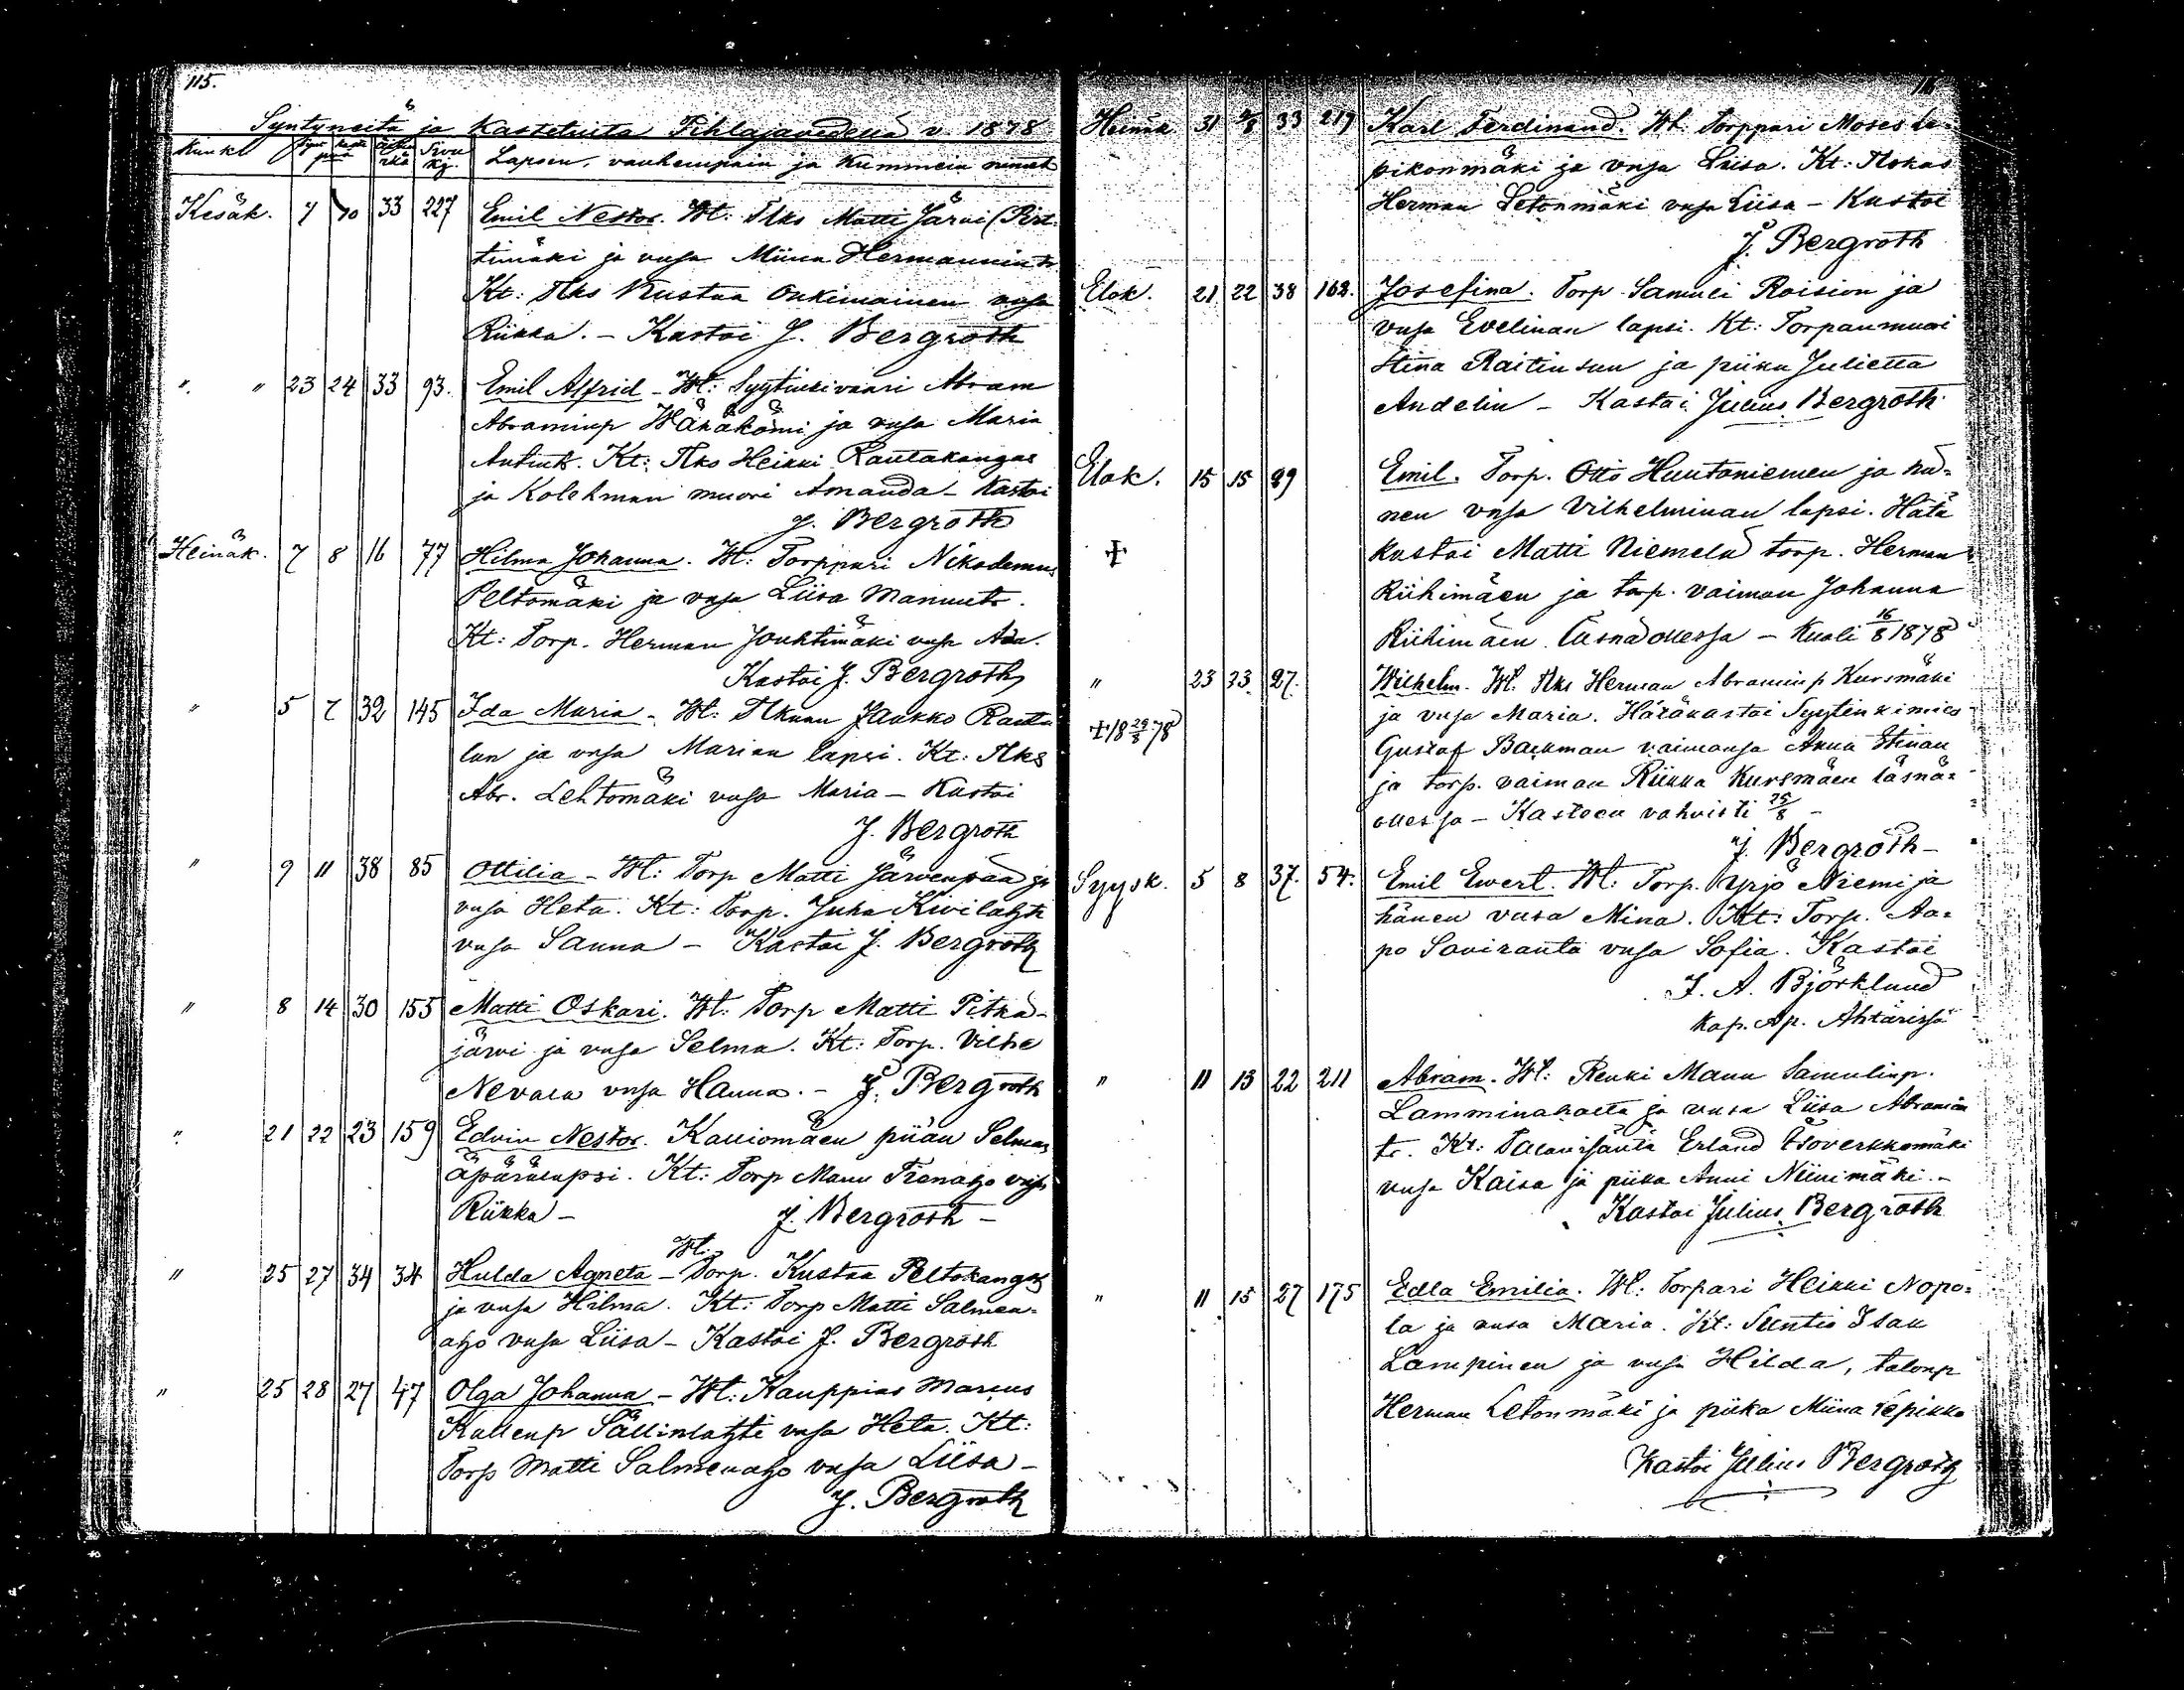 115.
Syntyneitä ja Kastetuita Pihlajavedellä v. 1878
Kuuk. Synt. Kast. päivä Äidin ikä Sivu kij. Lapsen, vanhempain ja Kummein nimet
Kesäk. 7 10 33 227 Emil Nestor. Wt: Itks Matti Järvi (Pirt-
timäki ja vmsa Miina Hermannint.
Kt: Itks Kustaa Onkimainen vmsa
Riikka. - Kastoi J. Bergroth
" " 23 24 33 93. Emil Alfrid - Wt: Syytinkivaari Abram
Abraminp Wäräkömi ja vmsa Maria
Antint. Kt: Itks Heikki Rautakangas
ja Kolehman muori Amanda - Kastoi
J. Bergroth
Heinäk. 7 8 16 77 Hilma Johanna. Wt: Torppari Nikodemus
Peltomäki ja vmsa Liisa Manunt.
Kt: Torp. Herman Jouhtimäki vmsa Ada.
Kastoi J. Bergroth
" 5 7 32 145 Ida Maria - Wt: Itkuun Jaakko Rauta
lan ja vmsa Marian lapsi. Kt: Itks
Abr. Lehtomäki vmsa Maria - Kastoi
J. Bergroth
" 9 11 38 85 Ottilia - Wt: Torp Matti Järvenpää ja
vmsa Heta. Kt: Torp. Juha Kivilahti
vmsa Sanna - Kastoi J. Bergroth
" 8 14 30 155 Matti Oskari. Wt: Torp Matti Pitkä-
järvi ja vmsa Selma. Kt: Torp. Vilhe
Nevala vmsa Hanna. - J. Bergroth
" 21 22 23 159 Edvin Nestor. Kalliomäen piian Selman
äpärälapsi. Kt: Torp Manu Tienaho vmsa
Riikka - J. Bergroth -
" 25 27 34 34 Hulda Agneta - Wt: Torp. Kustaa Peltokangas
ja vmsa Hilma. Kt: Torp Matti Salmen-
aho vmsa Liisa - Kastoi J. Bergroth
" 25 28 27 47 Olga Johanna - Wt: Kauppias Marcus
Kallenp Sällinlahti vmsa Heta. Kt:
Torp Matti Salmenaho vmsa Liisa -
J. Bergroth
Heinäk 31 2/8 33 219 Karl Ferdinand. Wt: Torppari Moses Le-
pikonmäki ja vmsa Liisa. Kt: Itokas
Herman Letonmäki vmsa Liisa - Kastoi
J. Bergroth
Elok. 21 22 38 162. Josefina. Torp Samuli Roision ja
vmsa Evelinan lapsi. Kt: Torpanmuori
Stina Raitinsuu ja piika Julietta
Andelin - Kastoi Julius Bergroth
Elok. 15 15 29 Emil. Torp. Otto Huutoniemen ja hä-
nen vmsa Vilhelminan lapsi. Hätä
✝ kastoi Matti Niemelä torp. Herman
Riihimäen ja torp. vaimon Johanna
Riihimäen läsnäollessa - Kuoli 16/8 1878
" 23 23 27. Wilhelm. Wt. Itks Herman Abraminp Kursmäki
ja vmsa Maria. Hätäkastoi Syytinkimies
✝ 18 29/8 78 Gustaf Backman vaimonsa Anna Stinan
ja torp. vaimon Riikka Kursmäen läsnä-
ollessa - Kasteen vahvisti 25/8 -
J. Bergroth -
Syysk. 5 8 37. 54. Emil Ewert. Wt: Torp. Yrjö Niemi ja
hänen vmsa Mina. Kt: Torp. Aa-
po Saviranta vmsa Sofia. Kastoi
J. A. Björklund
Kap. Ap. Ähtärissä
" 11 13 22 211 Abram. Wt: Renki Manu Samulinp.
Lamminahalta ja vmsa Liisa Abramin
tr. Kt: Talonisäntä Erland Isoverkkomäki
vmsa Kaisa ja piika Anni Niinimäki. -
Kastoi Julius Bergroth
" 11 15 27 175 Edla Emilia. Wt: Torpari Heikki Nopo-
la ja vmsa Maria. Kt: Suntio Isak
Lampinen ja vmsa Hilda, talonp
Herman Letonmäki ja piika Miina Lepikko
Kastoi Julius Bergroth